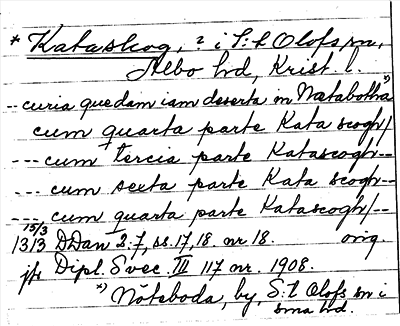 * Kataskog, ? i S:t Olofs sn,
Albo hd, Krist. l.
-- curia quedam iam deserta in Nætabotha *)
cum quarta parte Kata scogh/
--- cum tercia parte Katascogh--
--- cum sexta parte Kata scogh--
--- cum quarta parte Katascogh/--
15/3
1313 DDan 2.7, ss. 17, 18. nr. 18. orig.
jfr Dipl. Svec. III 117 nr. 1908.
*) Nöteboda, by, S:t Olofs sn i
sma hd.